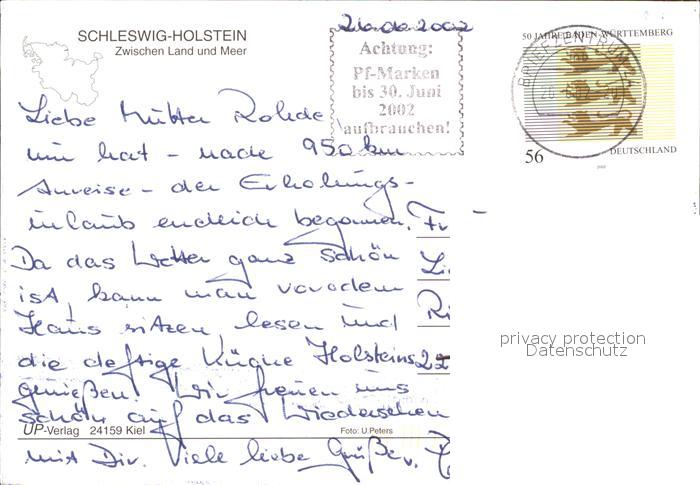 SCHLESWIG-HOLSTEIN
Zwischen Land und Meer
26.06.2002
Achtung:
Pf-Marken
bis 30. Juni
2002
aufbrauchen!
50 JAHRE BADEN-WÜRTTEMBERG
BRIEFZENTRUM
56
DEUTSCHLAND
2002
Liebe Mutter Rohde
nun hat - nach 950 km
Anreise - der Erholungs-
urlaub endlich begonnen.
Da das Wetter ganz schön
ist, kann man vor dem
Haus sitzen, lesen und
die deftige Küche Holsteins
genießen. Wir freuen uns
schon auf das Wiedersehen
mit Dir. Viele liebe Grüße v.
Fr
Li
Ri
22
privacy protection
Datenschutz
UP-Verlag 24159 Kiel
Foto: U.Peters